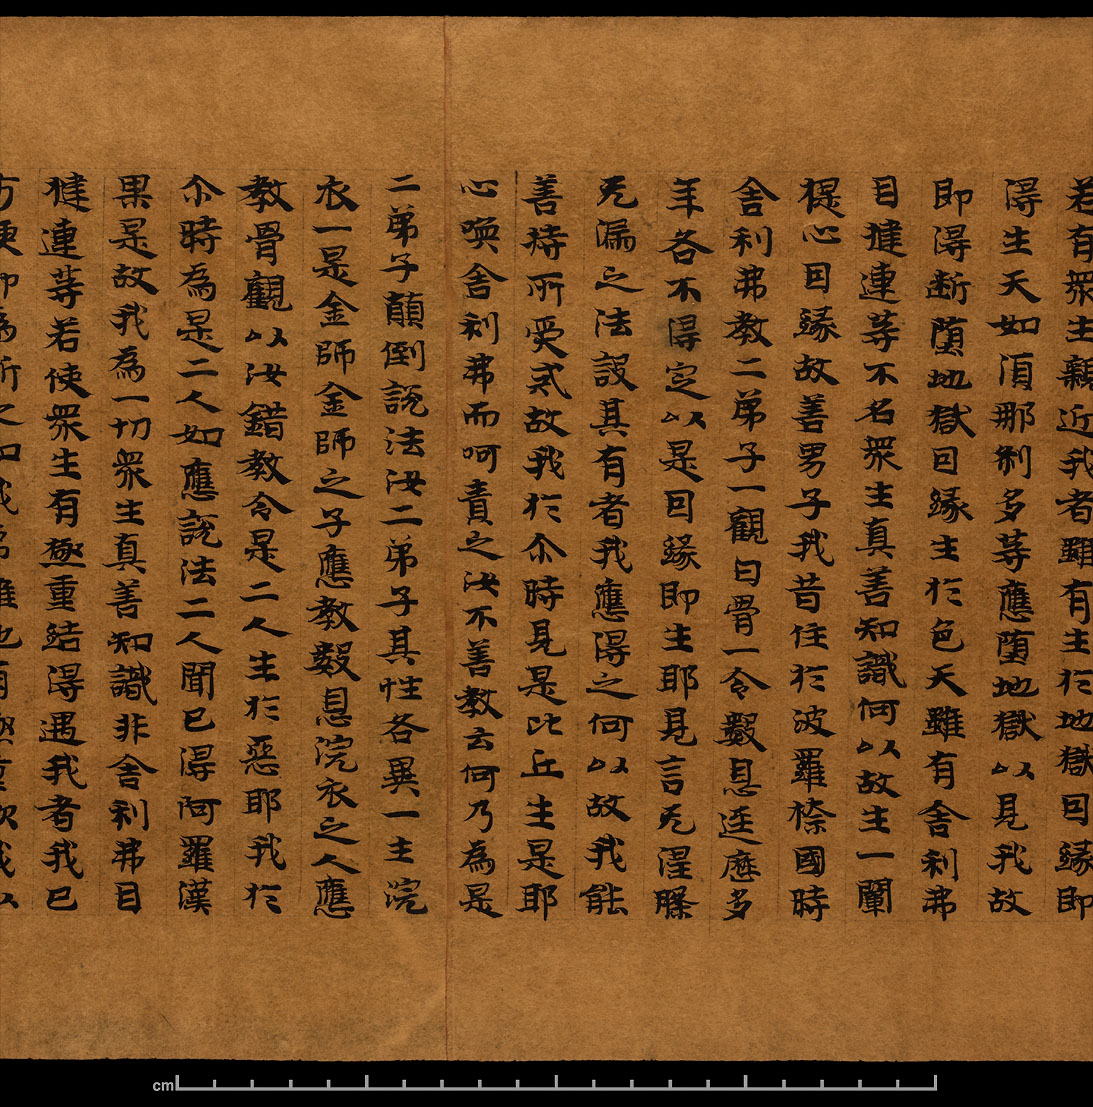 若有衆生親近我者雖有生於地獄因緣即
得生天如湏那刹多等應墮地獄以見我故
即得断墮地獄因緣生於色天雖有舍利弗
目揵連等不名衆生真善知識何以故生一闡
提心因緣故善男子我昔住於波羅㮈國時
舍利弗教二弟子一觀白骨一令數息逕歷多
年各不得定以是因緣即生耶見言无涅槃
无漏之法設其有者我應得之何以故我能
善持所受戒故我於尒時見是比丘生是耶
心喚舍利弗而呵責之汝不善教云何乃為是
二弟子顛倒說法汝二弟子其性各異一主浣
衣一是金師金師之子應教數息浣衣之人應
教骨觀以汝錯教令是二人生於惡耶我於
尒時為是二人如應說法二人聞已得阿羅漢
果是故我為一切衆生真善知識非舍利弗目
揵連等若使衆生有極重結得遇我者我已
方便即為断之如我弟難